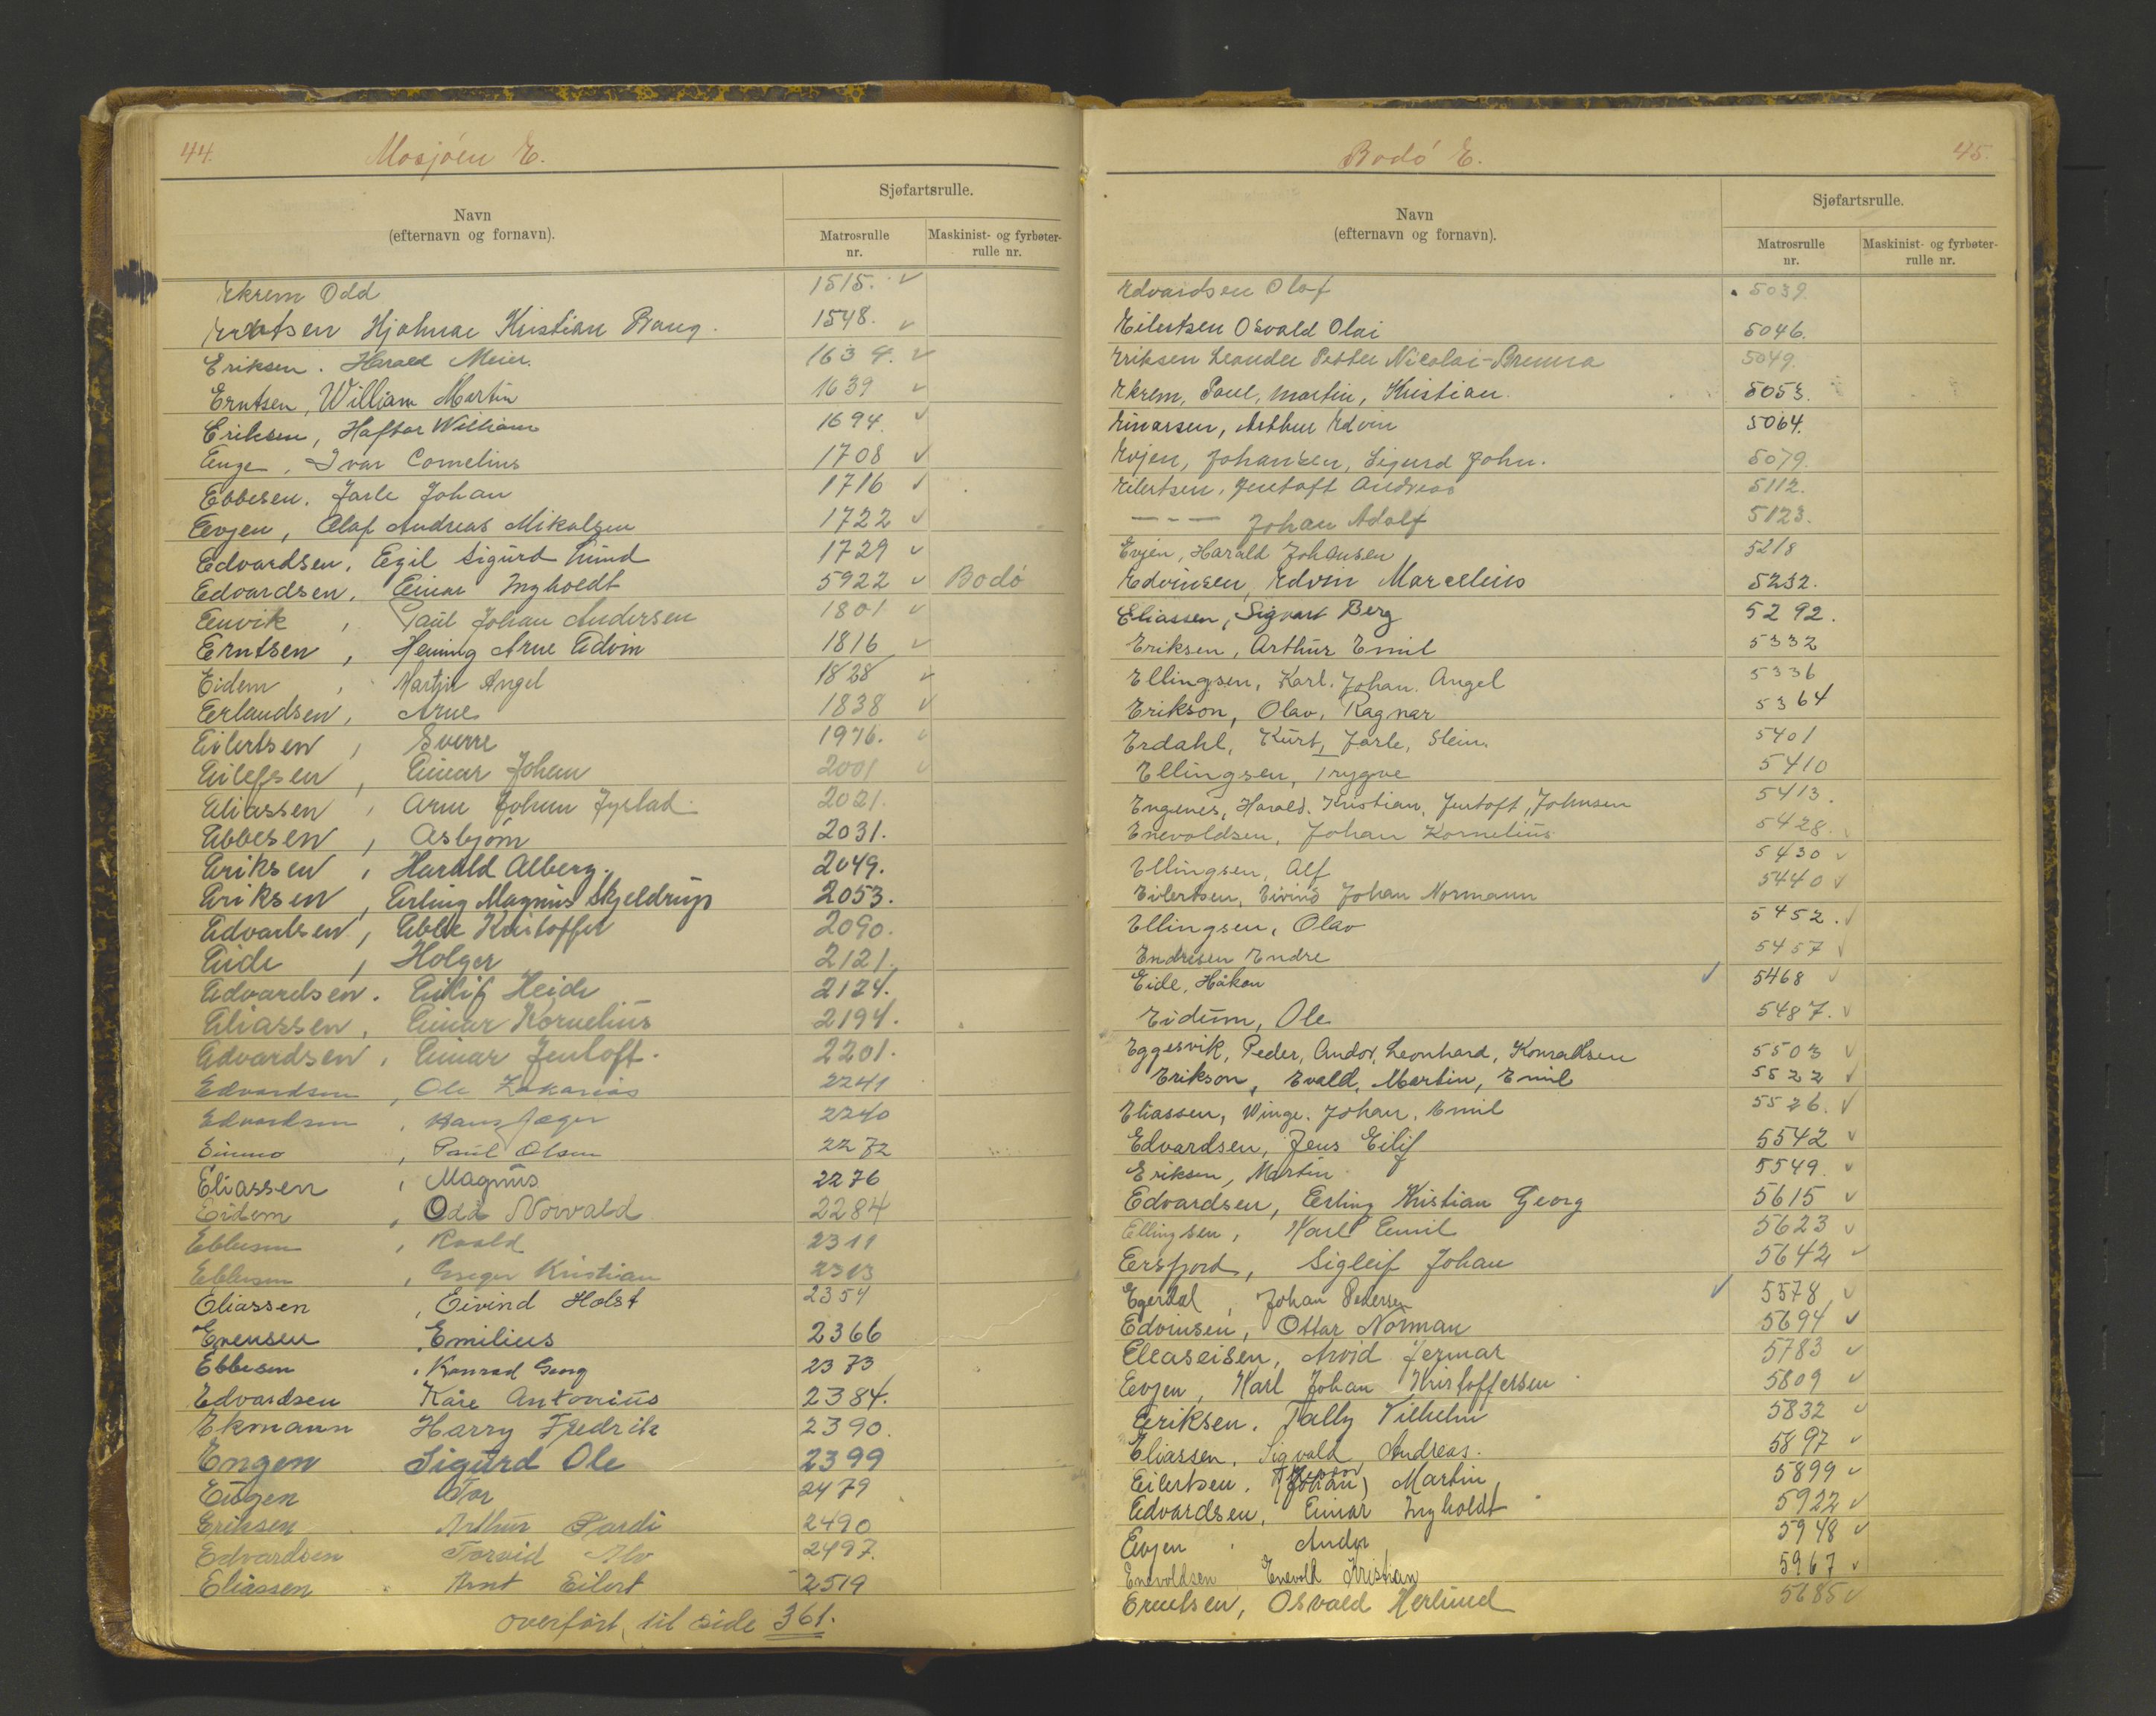 44.
Mosjøen E.
Sjøfartsrulle.
Navn
(efternavn og fornavn).
Matrosrulle
nr.
Maskinist- og fyrbøter-
rulle nr.
Ekrem Odd 1515. ✓
Hjalmar Kristian Bang. 1548. ✓
Eriksen. Harald Meier. 1634. ✓
Erntsen, William Martin 1639 ✓
Eriksen, Haftor William 1694. ✓
Enge, Ivar Cornelius 1708 ✓
Ebbesen. Jarle Johan 1716 ✓
Evjen, Olaf Andreas Mikalsen 1722 ✓
Edvardsen, Egil Sigurd Lund 1729 ✓
Edvardsen, Einar Ingholdt 5922 ✓ Bodö
Envik, Paul Johan Andersen 1801 ✓
Erntsen, Heining Arne Edvin 1816 ✓
Eidem, Martin Angel 1828 ✓
Erlandsen, Arne 1838 ✓
Eilertsen, Sverre 1976. ✓
Eilefsen, Einar Johan 2001 ✓
Eliassen, Arne Johan 2021.
Ebbesen, Asbjørn 2031.
Eriksen, Harald Alberg. 2049.
Eriksen, Erling Magnus Skjeldrup 2053.
Edvartsen, Ebbe Kristoffer 2090.
Eide, Holger 2121.
Edvardsen. Eilif Heide 2124.
Eliassen, Einar Kornelius 2194.
Edvardsen, Einar Jentoft. 2201.
Edvardsen, Ole Zakarias 2241
Edvardsen, Hans Jæger 2240
Paul Olsen 2272
Eliassen, Magnus 2276
Eidem, Odd Norvald 2284
Ebbesen, Roald 2311
Ebbesen, Greger Kristian 2313
Eliassen, Eivind Holst 2354
Evensen, Emilius 2366
Ebbesen, Konrad Georg 2373
Edvardsen Kåre Antonius 2384.
Ekmann Harry Fredrik 2390.
Engen Sigurd Ole 2399
Eugen Tor 2479
Eriksen Arthur Pardi 2490
Edvardsen Torvid Alv 2497.
Eliassen Arnt Eilert 2519
overført til side 361.
Bodö E.
45.
Sjøfartsrulle.
Navn
(efternavn og fornavn).
Matrosrulle
nr.
Maskinist- og fyrbøter-
rulle nr.
Edvardsen Olaf 5039.
Eilertsen Osvald Olai 5046.
Eriksen Leander Petter Nicolai-Brenna 5049.
Ekrem, Paul, Martin, Kristian. 5053.
Einarsen, Arthur Edvin 5064.
Evjen, Johansen, Sigurd John. 5079.
Eilertsen, Jentoft Andreas 5112.
— - — Johan Adolf 5123.
Evjen, Harald Johansen 5218
Edvinsen, Edvin Marcelius 5232.
Eliassen, Sigvart Berg 5292.
Eriksen, Arthur Emil 5332
Ellingsen, Karl. Johan. Angel 5336
Erikson, Olav, Ragnar 5364
Erdahl, Kurt, Jarle, Stein. 5401
Ellingsen, Trygve 5410
Engenes, Harald. Kristian, Jentoft, Johnsen 5413.
Enevoldsen, Johan Kornelius 5428.
Ellingsen, Alf 5430 ✓
Eilertsen, Eivind Johan Normann 5440 ✓
Ellingsen, Olav 5452. ✓
Endresen Endre 5457 ✓
Eide, Håkon ✓ 5468 ✓
Eidum, Ole 5487. ✓
Eggesvik, Peder, Andor, Leonhard, Konradsen 5503 ✓
Erikson, Evald, Martin, Emil 5522 ✓
Eliassen, Winge. Johan, Emil 5526. ✓
Edvardsen, Jens Eilif 5542 ✓
Eriksen, Martin 5549. ✓
Edvardsen, Erling Kristian Georg 5615 ✓
Ellingsen, Karl Emil 5623 ✓
Ersfjord, Sigleif Johan 5642 ✓
Egerdal, Johan Pedersen ✓ 5578 ✓
Edvinsen, Ottar Norman 5694 ✓
Eleaseisen, Arvid Jermar 5783 ✓
Evjen, Karl Johan Kristoffersen 5809 ✓
Eriksen, Tally Vilhelm 5832 ✓
Eliassen, Sigvald Andreas. 5897 ✓
Eilertsen, (Johan) Martin 5899 ✓
Edvardsen, Einar Ingholdt 5922 ✓
Evjen, Andor 5948 ✓
Enevoldsen Enevold Kristian 5967 ✓
Erntsen, Osvald Herlund 5685 ✓